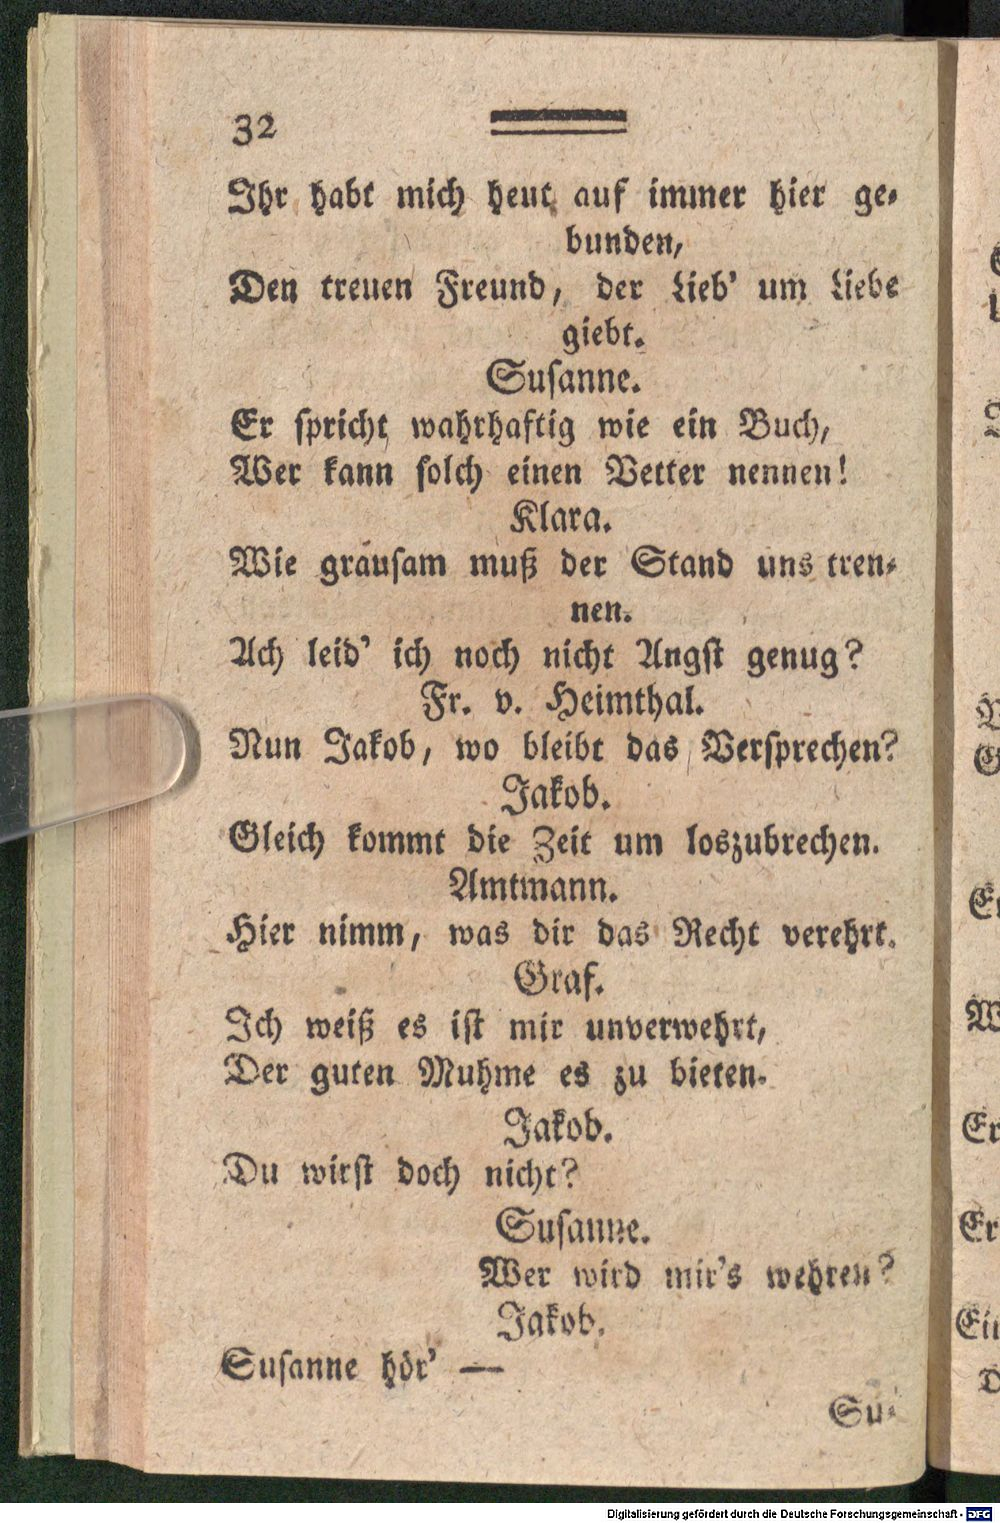 32
Ihr habt mich heut auf immer hier ge-
bunden,
Den treuen Freund, der Lieb' um Liebe
giebt.
Susanne.
Er spricht wahrhaftig wie ein Buch,
Wer kann solch einen Vetter nennen!
Klara.
Wie grausam muß der Stand uns tren-
nen.
Ach leid' ich noch nicht Angst genug?
Fr. v. Heimthal.
Nun Jakob, wo bleibt das Versprechen?
Jakob.
Gleich kommt die Zeit um loszubrechen.
Amtmann.
Hier nimm, was dir das Recht verehrt.
Graf.
Ich weiß es ist mir unverwehrt,
Der guten Muhme es zu bieten.
Jakob.
Du wirst doch nicht?
Susanne.
Wer wird mir's wehren?
Jakob.
Susanne hör' —
Su-
Digitalisierung gefördert durch die Deutsche Forschungsgemeinschaft - DFG